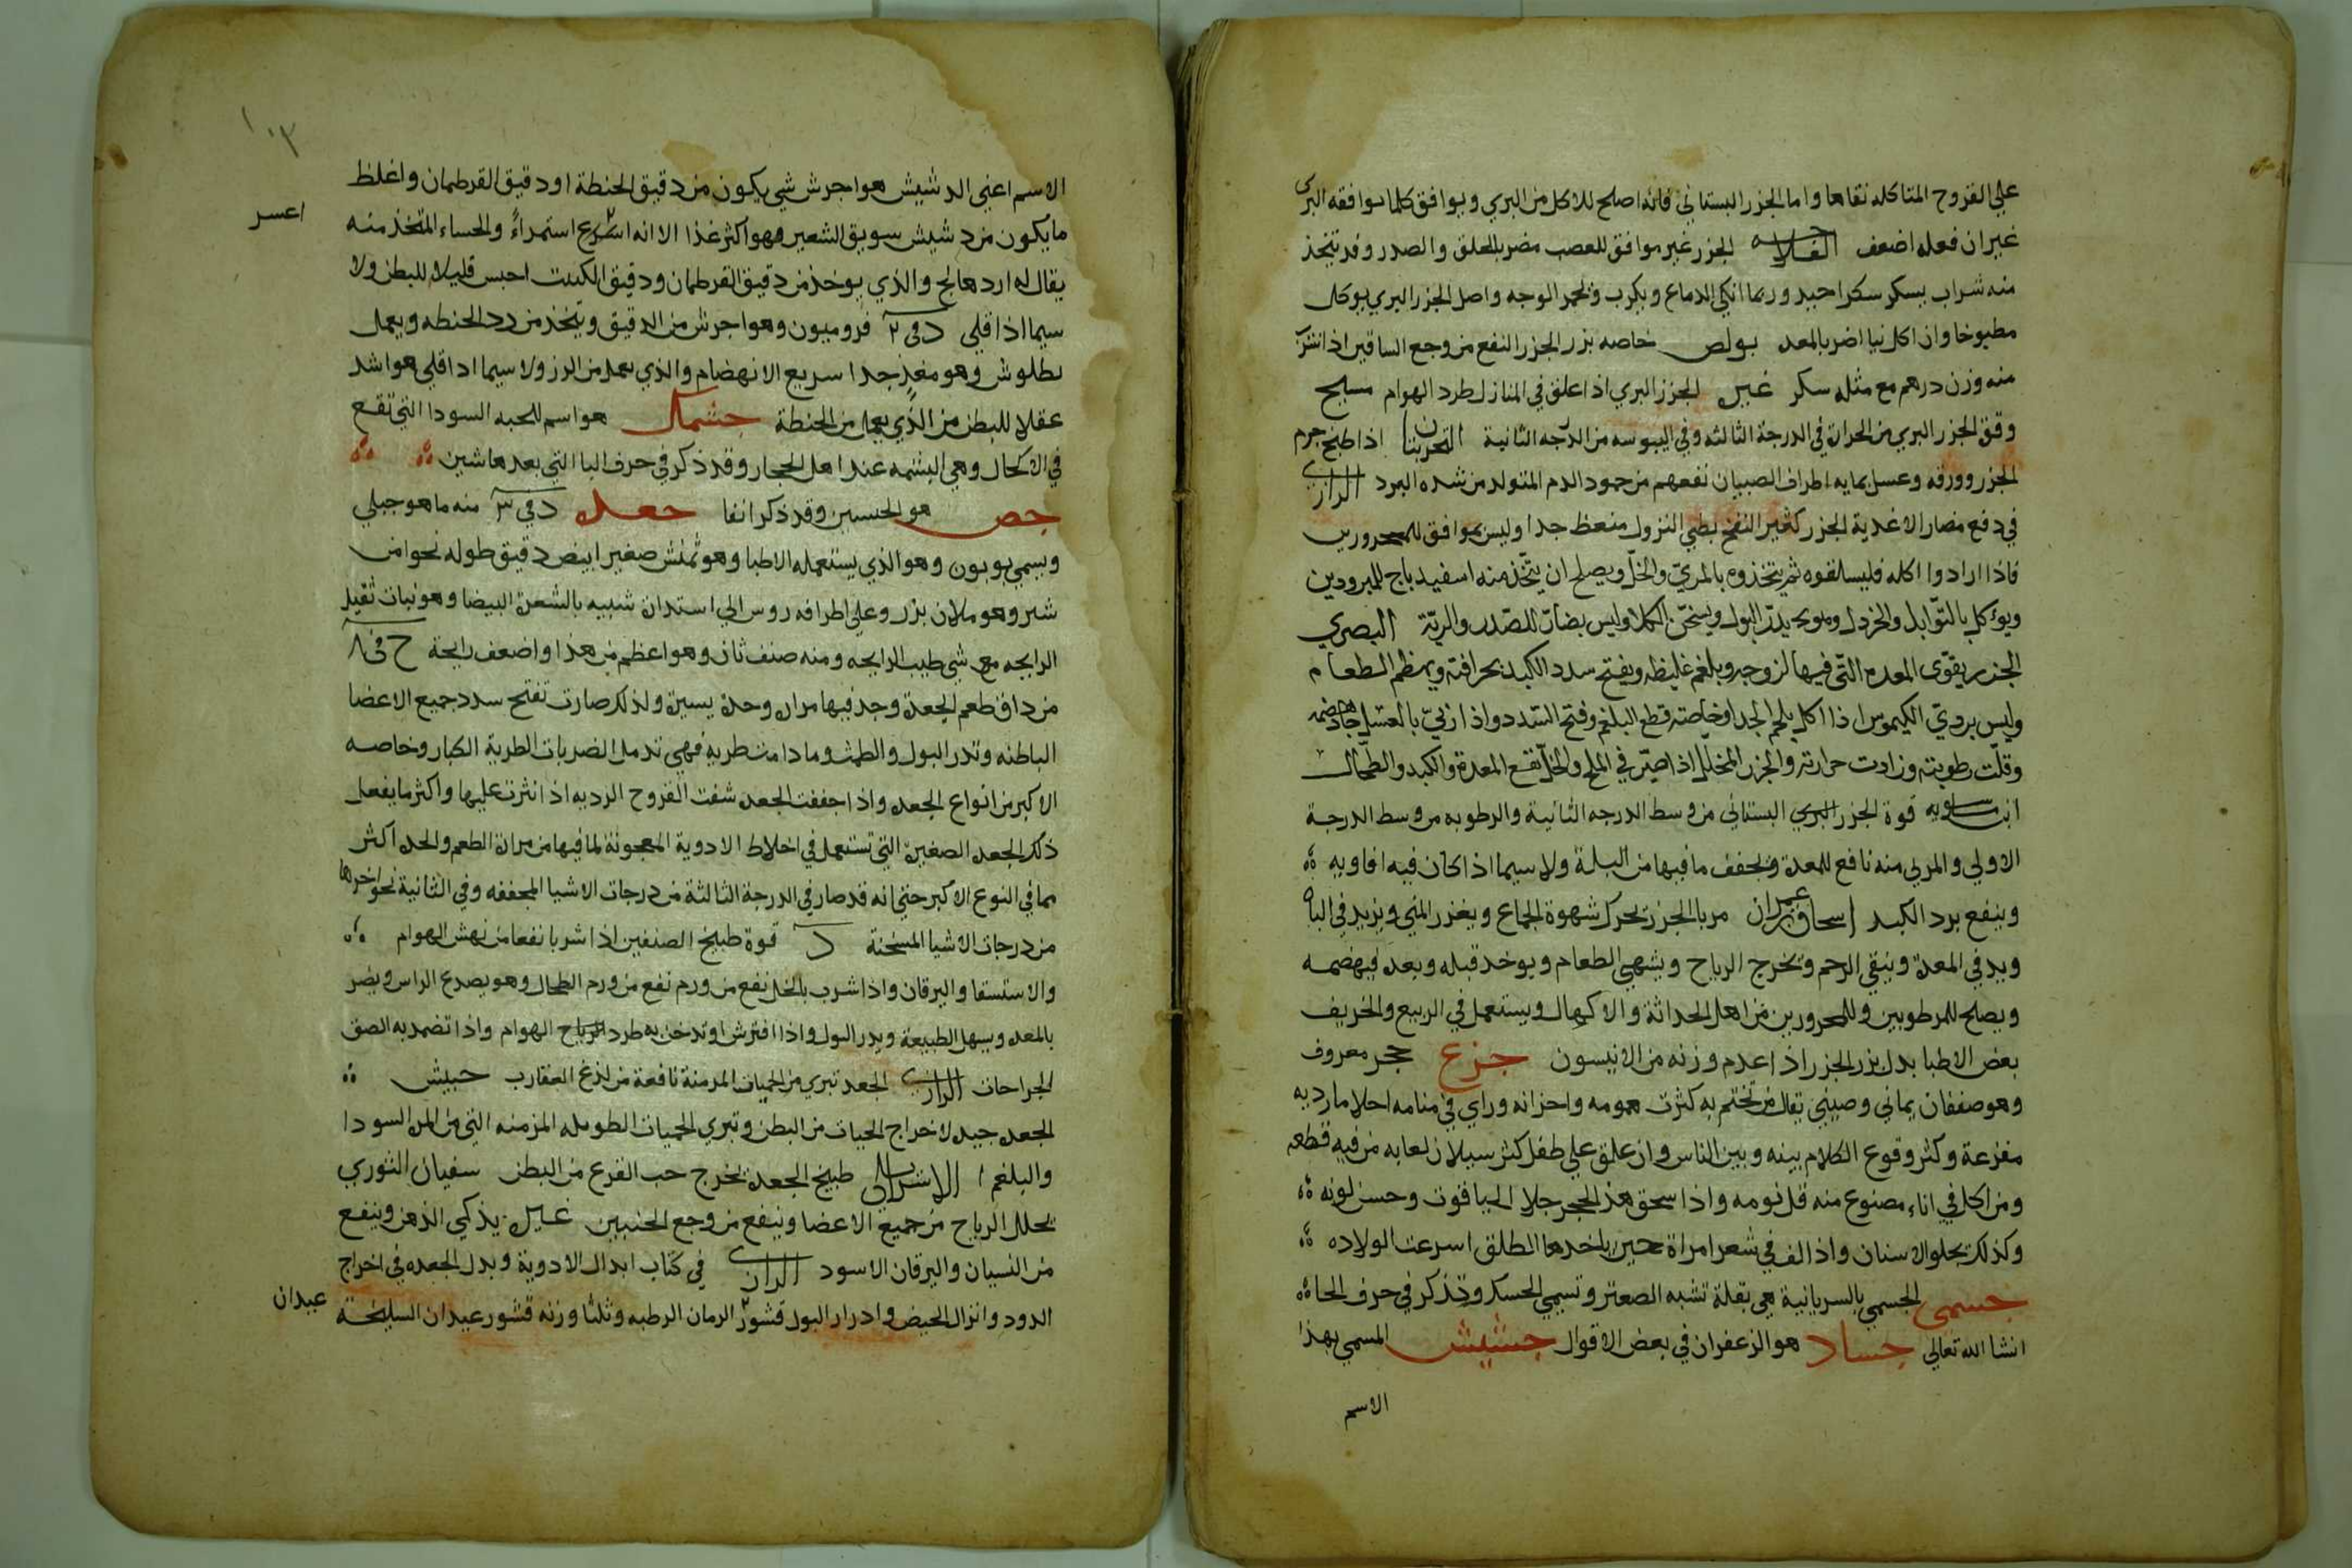 على القروح المتاكله نقاها واما الجزر البستاني فانه اصلح للاكل من البري ويوافق كلما يوافقه البري
غير ان فعله اضعف الفلاحه الجزر غير موافق للعصب مضر بالحلق والصدر وقد يتخذ
منه شراب يسكر سكرا جيد وربما انكى الدماغ ويكرب ويحمر الوجه واصل الجزر البري يوكل
مطبوخا وان اكل نيا اضر بالمعد بولص خاصه بزر الجزر النفع من وجع الساقين اذا شرب
منه وزن درهم مع مثله سكر غيره الجزر البري اذا علق في المنازل طرد الهوام مسيح
وقوة الجزر البري من الحرارة في الدرجة الثالثه وفي اليبوسه من الدرجه الثانية التجربتان اذا طبخ جرم
الجزر وورقه وغسل بمايه اطراف الصبيان نفعهم من جمود الدم المتولد من شده البرد الرازي
في دفع مضار الاغدية الجزر كثير النفخ بطي النزول منعظ جدا وليس بموافق للمحرورين
فاذا ارادوا اكله فليسلقوه ثم يتخذوه بالمري والخل ويصلح ان يتخذ منه اسفيدباج للمبرودين
ويؤكل بالتوابل والخردل وهو يدر البول ويسخن الكلا وليس بضار للصدر والرية البصري
الجزر يقوى المعده التى فيها لزوجه وبلغم غليظ ويفتح سدد الكبد بحرافته ويهضم الطعام
وليس بردي الكيموس اذا اكل بلحم الجدا وخاصته قطع البلغم وفتح السدد واذا ربي بالعسل جاد هضمه
وقلت رطوبته وزادت حرارته والجزر المخلل اذا صير في الملح والخل نفع المعدة والكبد والطحال
ابن ماسويه قوة الجزر البري البستاني من وسط الدرجه الثانية والرطوبه من وسط الدرجة
الاولي والمربي منه نافع للمعدة ويجفف ما فيها من البلة ولا سيما اذا كان فيه افاويه
وينفع برد الكبد اسحاق بن عمران مربا الجزر يحرك شهوة الجماع ويغزر المني ويزيد في الباه
ويدفي المعدة وينقي الرحم ويخرج الرياح ويشهي الطعام ويوخد قبله وبعد فيهضمه
ويصلح للمرطوبين وللمحرورين من اهل الحداثة والاكهال ويستعمل في الربيع والخريف
بعض الاطبا بدل بزر الجزر اذا عدم وزنه من الانيسون جزع حجر معروف
وهو صنفان يماني وصيني يقال من تختم به كثرت همومه واحزانه وراي في منامه احلاما رديه
مفزعة وكثر وقوع الكلام بينه وبين الناس وان علق علي طفل كثر سيلان لعابه من فيه قطعه
ومن اكل في اناء مصنوع منه قل نومه واذا سحق هذا الحجر جلا الياقوت وحسن لونه
وكذلك يجلو الاسنان واذا لف في شعر امراة حين ياخدها الطلق اسرعت الولاده
جسمى الجسمي بالسريانية هي بقلة تشبه الصعتر وتسمي الحسك وتذكر في حرف الحا
انشا الله تعالي جساد هو الزعفران في بعض الاقوال جشيش المسمي بهذا
الاسم
١٠٣
الاسم اعني الدشيش هو اجرش شي يكون من دقيق الحنطة او دقيق القرطمان واغلظ
ما يكون من دشيش سويق الشعير وهو اكثر غذا الا انه اسرع استمراءً والحساء المتخذ منه
اعسر
يقال له اردهالج والذي يوخذ من دقيق القرطمان ودقيق الكنيت احبس قليلا للبطن ولا
سيما اذا قلي د في ٢ قروميون وهو اجرش من الدقيق ويتخذ من درد الحنطه ويعمل
بطلوش وهو مغذٍ جدا سريع الانهضام والذي يعمل من الرز ولا سيما اداقلي هو اشد
عقلا للبطن من الذي يعمل من الحنطة جشمك هو اسم للحبه السودا التي تقع
في الاكحال وهي البشمه عند اهل الحجار وقد ذكر في حرف البا التي بعدها شين
جص هو الجبسين وقد ذكر انفا جعده د في ٣ منه ما هو جبلي
ويسمي بوبون وهو الذي يستعمله الاطبا وهو تمنش صغير ابيض دقيق طوله نحوا من
شبر وهو ملان بزر وعلي اطرافه روس الي استدارة شبيه بالشعرة البيضا وهو نبات ثقيل
الرايحه مع شي طيب الرايحه ومنه صنف ثان وهو اعظم من هذا واضعف رايحة ج في ٨
من ذاق طعم الجعدة وجد فيها مرارة وحدة يسيرة ولذلك صارت تفتح سدد جميع الاعضا
الباطنه وتدر البول والطمث وما دامت طرية فهي تدمل الضربات الطرية الكبار وخاصه
الاكبر من انواع الجعده واذا جففت الجعد شفت القروح الرديه اذا نثرت عليها واكثر ما يفعل
ذلك الجعد الصغيرة التي تستعمل في اخلاط الادوية المعجونة لما فيها من مرارة الطعم والحد اكثر
مما في النوع الاكبر حتي انه قد صار في الدرجة الثالثة من درجات الاشيا المجففه وفي الثانية نحو اخرها
من درجات الاشيا المسخنة د قوة طبيخ الصنفين اذا شربا نفعا من نهش الهوام
والاستسقا واليرقان واذا شرب بالخل نفع من ورم نفع من ورم الطحال وهو يصدع الراس ويضر
بالمعد ويسهل الطبيعة ويدر البول واذا افترش او تدخن به طرد الرياح الهوام واذا تضمد به الصق
الجراحات الرازي الجعد تبري من الحميات المزمنة نافعة من لذع العقارب حبيش
الجعد جيد لاخراج الحيات من البطن وتبري الحميات الطويله المزمنه التي من المرة السودا
والبلغم طبيخ الجعدة يخرج حب القرع من البطن سفيان الثوري
يحلل الرياح من جميع الاعضا وينفع من وجع الجنبين غيره يذكي الذهن وينفع
من النسيان واليرقان الاسود الرازي في كتاب ابدال الادوية وبدل الجعده في اخراج
الدود وانزال الحيض وادرار البول قشور الرمان الرطبه وثلثا وزنه قشور عيدان السليخة
عيدان